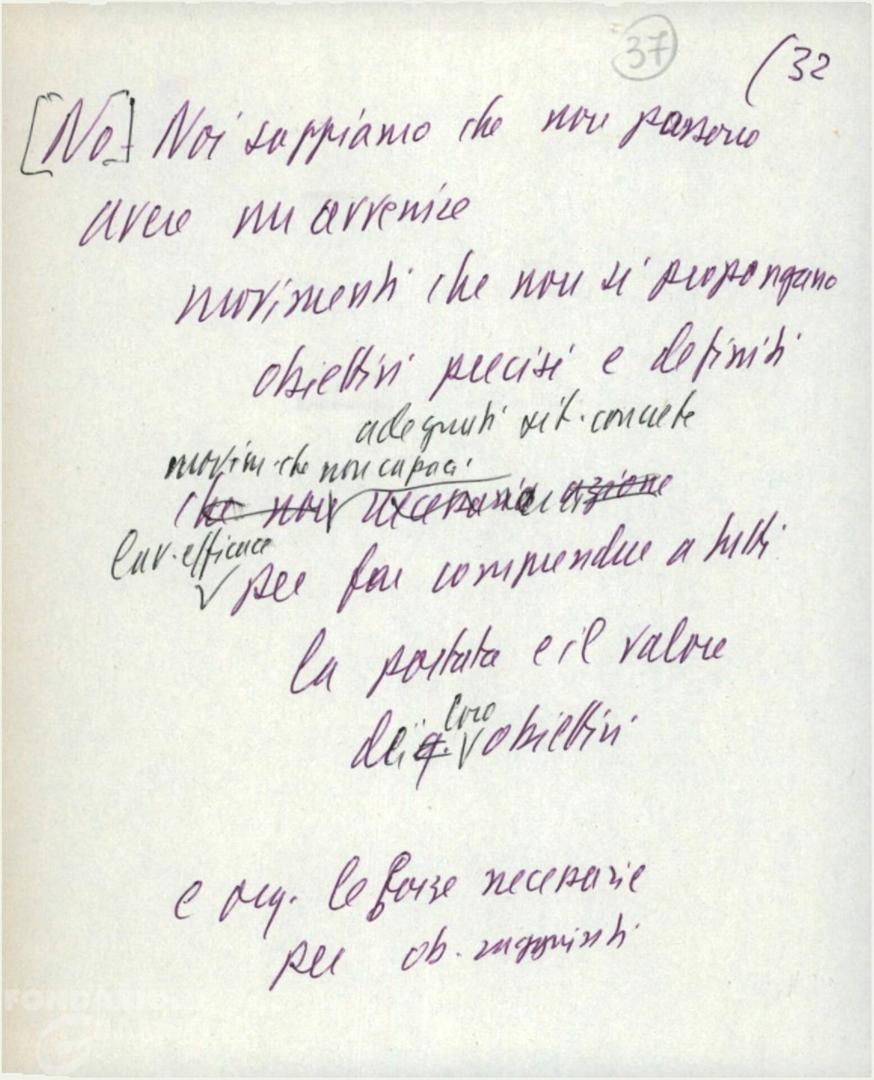 37
(32
[No] Noi sappiamo che non possono
avere un avvenire
movimenti che non si propongano
obiettivi precisi e definiti
adeguati sit. concrete
movim. che non capaci
che non necessaria azione
lav. efficace
per far comprendere a tutti
la portata e il valore
loro
dei q. obiettivi
e org. le forze necessarie
per ob. raggiunti
FONDAZIO